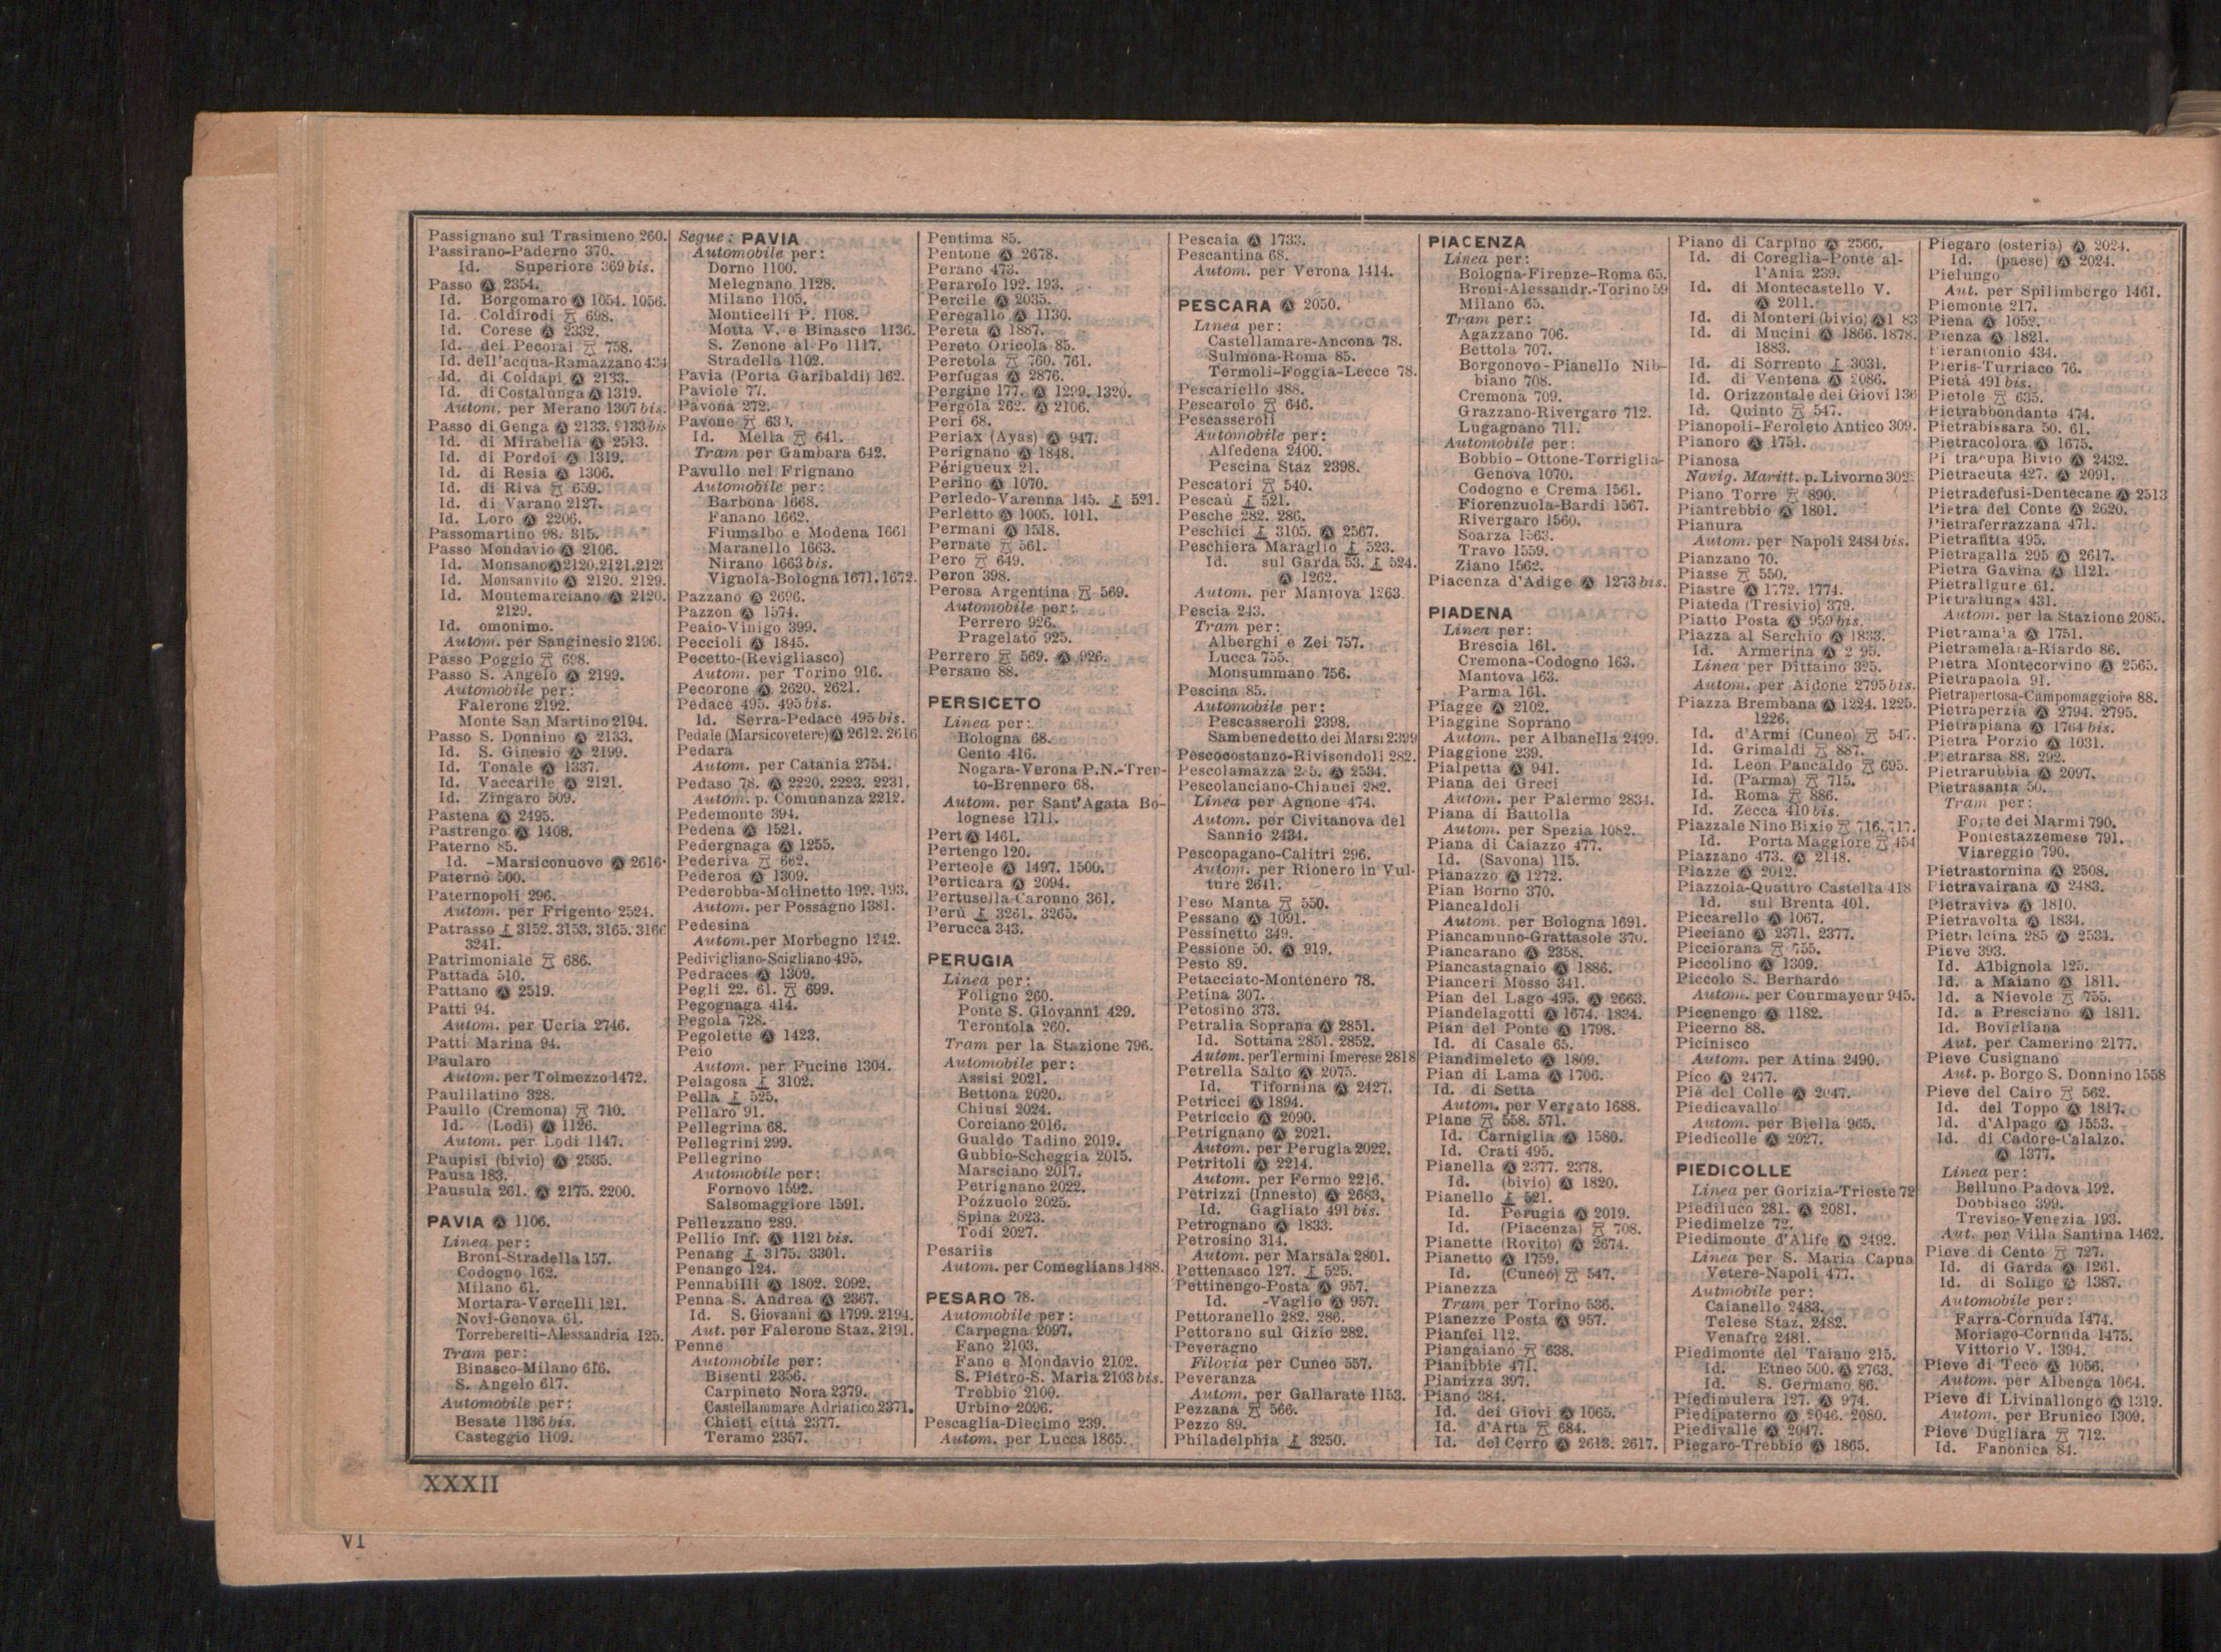 Passignano sul Trasimeno 260.
Passirano-Paderno 370.
Id. Superiore 369 bis.
Passo Ⓐ 2354.
Id. Borgomaro Ⓐ 1054. 1056.
Id. Coldirodi 698.
Id. Corese Ⓐ 2332.
Id. dei Pecorai 758.
Id. dell'acqua-Ramazzano 434
Id. di Coldapi Ⓐ 2133.
Id. di Costalunga Ⓐ 1319.
Autom. per Merano 1307 bis.
Passo di Genga Ⓐ 2133. 2133 bis
Id. di Mirabella Ⓐ 2513.
Id. di Pordoi Ⓐ 1319.
Id. di Resia Ⓐ 1306.
Id. di Riva 659.
Id. di Varano 2127.
Id. Loro Ⓐ 2206.
Passomartino 98. 315.
Passo Mondavio Ⓐ 2106.
Id. Monsano Ⓐ 2120. 2121.
Id. Monsanvito Ⓐ 2120. 2129.
Id. Montemarciano Ⓐ 2120.
2129.
Id. omonimo.
Autom. per Sanginesio 2196.
Passo Poggio 698.
Passo S. Angelo Ⓐ 2199.
Automobile per:
Falerone 2192.
Monte San Martino 2194.
Passo S. Donnino Ⓐ 2133.
Id. S. Ginesio Ⓐ 2199.
Id. Tonale Ⓐ 1337.
Id. Vaccarile Ⓐ 2121.
Id. Zingaro 509.
Pastena Ⓐ 2495.
Pastrengo Ⓐ 1408.
Paterno 85.
Id. -Marsiconuovo Ⓐ 2616.
Paternò 500.
Paternopoli 296.
Autom. per Frigento 2524.
Patrasso 3152. 3153. 3165. 3166
3241.
Patrimoniale 686.
Pattada 510.
Pattano Ⓐ 2519.
Patti 94.
Autom. per Ucria 2746.
Patti Marina 94.
Paularo
Autom. per Tolmezzo 1472.
Paulilatino 328.
Paullo (Cremona) 710.
Id. (Lodi) Ⓐ 1126.
Autom. per Lodi 1147.
Paupisi (bivio) Ⓐ 2535.
Pausa 183.
Pausula 261. Ⓐ 2175. 2200.
PAVIA Ⓐ 1106.
Linea per:
Broni-Stradella 157.
Codogno 162.
Milano 61.
Mortara-Vercelli 121.
Novi-Genova 61.
Torreberetti-Alessandria 125.
Tram per:
Binasco-Milano 616.
S. Angelo 617.
Automobile per:
Besate 1136 bis.
Casteggio 1109.
Segue: PAVIA
Automobile per:
Dorno 1100.
Melegnano 1128.
Milano 1105.
Monticelli P. 1108.
Motta V. e Binasco 1136.
S. Zenone al Po 1117.
Stradella 1102.
Pavia (Porta Garibaldi) 162.
Paviole 77.
Pavona 272.
Pavone
Id. Mella 641.
Tram per Gambara 642.
Pavullo nel Frignano
Automobile per:
Barbona 1668.
Fanano 1662.
Fiumalbo e Modena 1661
Maranello 1663.
Nirano 1663 bis.
Vignola-Bologna 1671. 1672.
Pazzano Ⓐ 2696.
Pazzon Ⓐ 1574.
Peaio-Vinigo 399.
Peccioli Ⓐ 1845.
Pecetto-(Revigliasco)
Autom. per Torino 916.
Pecorone Ⓐ 2620. 2621.
Pedace 495. 495 bis.
Id. Serra-Pedace 495 bis.
Pedale (Marsicovetere) Ⓐ 2612. 2616
Pedara
Autom. per Catania 2754.
Pedaso 78. Ⓐ 2220. 2223. 2231.
Autom. p. Comunanza 2212.
Pedemonte 394.
Pedena Ⓐ 1521.
Pedergnaga Ⓐ 1255.
Pederiva 662.
Pederoa Ⓐ 1309.
Pederobba-Molinetto 192. 193.
Autom. per Possagno 1381.
Pedesina
Autom. per Morbegno 1242.
Pedivigliano-Scigliano 495.
Pedraces Ⓐ 1309.
Pegli 22. 61. 699.
Pegognaga 414.
Pegola 728.
Pegolette Ⓐ 1423.
Peio
Autom. per Fucine 1304.
Pelagosa 3102.
Pella 525.
Pellaro 91.
Pellegrina 68.
Pellegrini 299.
Pellegrino
Automobile per:
Fornovo 1592.
Salsomaggiore 1591.
Pellezzano 289.
Pellio Inf. Ⓐ 1121 bis.
Penang 3175. 3301.
Penango 124.
Pennabilli Ⓐ 1802. 2092.
Penna S. Andrea Ⓐ 2367.
Id. S. Giovanni Ⓐ 1799. 2194.
Aut. per Falerone Staz. 2191.
Penne
Automobile per:
Bisenti 2356.
Carpineto Nora 2379.
Castellammare Adriatico 2371.
Chieti città 2377.
Teramo 2357.
Pentima 85.
Pentone Ⓐ 2678.
Perano 473.
Perarolo 192. 193.
Percile Ⓐ 2035.
Peregallo Ⓐ 1130.
Pereta Ⓐ 1887.
Pereto Oricola 85.
Peretola 760. 761.
Perfugas Ⓐ 2876.
Pergine 177. Ⓐ 1299. 1320.
Pergola 262. Ⓐ 2106.
Peri 68.
Periax (Ayas) Ⓐ 947.
Perignano Ⓐ 1848.
Périgueux 21.
Perino Ⓐ 1070.
Perledo-Varenna 145. 521.
Perletto Ⓐ 1005. 1011.
Permani Ⓐ 1518.
Pernate 561.
Pero 649.
Peron 398.
Perosa Argentina 569.
Automobile per:
Perrero 926.
Pragelato 925.
Perrero 569. Ⓐ 926.
Persano 88.
PERSICETO
Linea per:
Bologna 68.
Cento 416.
Nogara-Verona P.N.-Tren-
to-Brennero 68.
Autom. per Sant'Agata Bo-
lognese 1711.
Pert Ⓐ 1461.
Pertengo 120.
Perteole Ⓐ 1497. 1500.
Perticara Ⓐ 2094.
Pertusella Caronno 361.
Perù 3261. 3265.
Perucca 343.
PERUGIA
Linea per:
Foligno 260.
Ponte S. Giovanni 429.
Terontola 260.
Tram per la Stazione 796.
Automobile per:
Assisi 2021.
Bettona 2020.
Chiusi 2024.
Corciano 2016.
Gualdo Tadino 2019.
Gubbio-Scheggia 2015.
Marsciano 2017.
Petrignano 2022.
Pozzuolo 2025.
Spina 2023.
Todi 2027.
Pesariis
Autom. per Comeglians 1488.
PESARO 78.
Automobile per:
Carpegna 2097.
Fano 2103.
Fano e Mondavio 2102.
S. Pietro-S. Maria 2103 bis.
Trebbio 2100.
Urbino 2096.
Pescaglia-Diecimo 239.
Autom. per Lucca 1865.
Pescaia Ⓐ 1733.
Pescantina 68.
Autom. per Verona 1414.
PESCARA Ⓐ 2050.
Linea per:
Castellamare-Ancona 78.
Sulmona-Roma 85.
Termoli-Foggia-Lecce 78.
Pescariello 488.
Pescarolo 646.
Pescasseroli
Automobile per:
Alfedena 2400.
Pescina Staz 2398.
Pescatori 540.
Pescaù 521.
Pesche 282. 286.
Peschici 3105. Ⓐ 2567.
Peschiera Maraglio 523.
Id. sul Garda 53. 524.
Ⓐ 1262.
Autom. per Mantova 1263.
Pescia 243.
Tram per:
Alberghi e Zei 757.
Lucca 755.
Monsummano 756.
Pescina 85.
Automobile per:
Pescasseroli 2398.
Sambenedetto dei Marsi 2399
Pescocostanzo-Rivisondoli 282.
Pescolamazza Ⓐ 2534.
Pescolanciano-Chiauci 282.
Linea per Agnone 474.
Autom. per Civitanova del
Sannio 2434.
Pescopagano-Calitri 296.
Autom. per Rionero in Vul-
ture 2641.
Peso Manta 550.
Pessano Ⓐ 1091.
Pessinetto 349.
Pessione 50. Ⓐ 919.
Pesto 89.
Petacciato-Montenero 78.
Petina 307.
Petosino 373.
Petralia Soprana Ⓐ 2851.
Id. Sottana 2851. 2852.
Autom. per Termini Imerese 2818
Petrella Salto Ⓐ 2075.
Id. Tifornina Ⓐ 2427.
Petricci Ⓐ 1894.
Petriccio Ⓐ 2090.
Petrignano Ⓐ 2021.
Autom. per Perugia 2022.
Petritoli Ⓐ 2214.
Autom. per Fermo 2216.
Petrizzi (Innesto) Ⓐ 2683.
Id. Gagliato 491 bis.
Petrognano Ⓐ 1833.
Petrosino 314.
Autom. per Marsala 2801.
Pettenasco 127. 525.
Pettinengo-Posta Ⓐ 957.
Id. -Vaglio Ⓐ 957.
Pettoranello 282. 286.
Pettorano sul Gizio 282.
Peveragno
Filovia per Cuneo 557.
Peveranza
Autom. per Gallarate 1153.
Pezzana 566.
Pezzo 89.
Philadelphia 3250.
PIACENZA
Linea per:
Bologna-Firenze-Roma 65.
Broni-Alessandr.-Torino 59
Milano 65.
Tram per:
Agazzano 706.
Bettola 707.
Borgonovo-Pianello Nib-
biano 708.
Cremona 709.
Grazzano-Rivergaro 712.
Lugagnano 711.
Automobile per:
Bobbio-Ottone-Torriglia-
Genova 1070.
Codogno e Crema 1561.
Fiorenzuola-Bardi 1567.
Rivergaro 1560.
Soarza 1563.
Travo 1559.
Ziano 1562.
Piacenza d'Adige Ⓐ 1273 bis.
PIADENA
Linea per:
Brescia 161.
Cremona-Codogno 163.
Mantova 163.
Parma 161.
Piagge Ⓐ 2102.
Piaggine Soprano
Autom. per Albanella 2499.
Piaggione 239.
Pialpetta Ⓐ 941.
Piana dei Greci
Autom. per Palermo 2834.
Piana di Battolla
Autom. per Spezia 1082.
Piana di Caiazzo 477.
Id. (Savona) 115.
Pianazzo Ⓐ 1272.
Pian Borno 370.
Piancaldoli
Autom. per Bologna 1691.
Piancamuno-Grattasole 370.
Piancarano Ⓐ 2358.
Piancastagnaio Ⓐ 1886.
Pianceri Mosso 341.
Pian del Lago 495. Ⓐ 2663.
Piandelagotti Ⓐ 1674. 1834.
Pian del Ponte Ⓐ 1798.
Id. di Casale 65.
Piandimeleto Ⓐ 1809.
Pian di Lama Ⓐ 1706.
Id. di Setta
Autom. per Vergato 1688.
Piane 558. 571.
Id. Carniglia Ⓐ 1580.
Id. Crati 495.
Pianella Ⓐ 2377. 2378.
Id. (bivio) Ⓐ 1820.
Pianello 521.
Id. Perugia Ⓐ 2019.
Id. (Piacenza) 708.
Pianette (Rovito) Ⓐ 2674.
Pianetto Ⓐ 1759.
Id. (Cuneo) 547.
Pianezza
Tram per Torino 536.
Pianezze Posta Ⓐ 957.
Pianfei 112.
Piangaiano 638.
Pianibbie 471.
Pianizza 397.
Piano 384.
Id. dei Giovi Ⓐ 1065.
Id. d'Arta 684.
Id. del Cerro Ⓐ 2613. 2617.
Piano di Carpino Ⓐ 2566.
Id. di Coreglia-Ponte al-
l'Ania 239.
Id. di Montecastello V.
Ⓐ 2011.
Id. di Monteri (bivio) Ⓐ
Id. di Mucini Ⓐ 1866. 1878.
1883.
Id. di Sorrento 3031.
Id. di Ventena Ⓐ 2086.
Id. Orizzontale dei Giovi 136
Id. Quinto 547.
Pianopoli-Feroleto Antico 309.
Pianoro Ⓐ 1751.
Pianosa
Navig. Maritt. p. Livorno
Piano Torre 890.
Piantrebbio Ⓐ 1801.
Pianura
Autom. per Napoli 2484 bis.
Pianzano 70.
Piasse 550.
Piastre Ⓐ 1772. 1774.
Piateda (Tresivio) 379.
Piatto Posta Ⓐ 959 bis.
Piazza al Serchio Ⓐ 1833.
Id. Armerina Ⓐ
Linea per Dittaino 325.
Autom. per Aidone 2795 bis.
Piazza Brembana Ⓐ 1224. 1225.
1226.
Id. d'Armi (Cuneo) 547.
Id. Grimaldi 887.
Id. Leon Pancaldo 695.
Id. (Parma) 715.
Id. Roma 886.
Id. Zecca 410 bis.
Piazzale Nino Bixio 716. 717.
Id. Porta Maggiore 454
Piazzano 473. Ⓐ 2148.
Piazze Ⓐ 2012.
Piazzola-Quattro Castella 418
Id. sul Brenta 401.
Piccarello Ⓐ 1067.
Picciano Ⓐ 2371. 2377.
Picciorana 755.
Piccolino Ⓐ 1309.
Piccolo S. Bernardo
Autom. per Courmayeur 945.
Picenengo Ⓐ 1182.
Picerno 88.
Picinisco
Autom. per Atina 2490.
Pico Ⓐ 2477.
Piè del Colle Ⓐ 2047.
Piedicavallo
Autom. per Biella 965.
Piedicolle Ⓐ 2027.
PIEDICOLLE
Linea per Gorizia-Trieste 72
Piediluco 281. Ⓐ 2081.
Piedimelze 72.
Piedimonte d'Alife Ⓐ 2492.
Linea per S. Maria Capua
Vetere-Napoli 477.
Autmobile per:
Caianello 2483.
Telese Staz. 2482.
Venafro 2481.
Piedimonte del Taiano 215.
Id. Etneo 500. Ⓐ 2763.
Id. S. Germano 86.
Piedimulera 127. Ⓐ 974.
Piedipaterno Ⓐ 2046. 2080.
Piedivalle Ⓐ 2047.
Piegaro-Trebbio Ⓐ 1865.
Piegaro (osteria) Ⓐ 2024.
Id. (paese) Ⓐ 2024.
Pielungo
Aut. per Spilimbergo 1461.
Piemonte 217.
Piena Ⓐ 1052.
Pienza Ⓐ 1821.
Pierantonio 434.
Pieris-Turriaco 76.
Pietà 491 bis.
Pietole 635.
Pietrabbondante 474.
Pietrabissara 50. 61.
Pietracolora Ⓐ 1675.
Pi tracupa Bivio Ⓐ 2432.
Pietracuta 427. Ⓐ 2091.
Pietradefusi-Dentecane Ⓐ 2513
Pietra del Conte Ⓐ 2620.
Pietraferrazzana 471.
Pietrafitta 495.
Pietragalla 295 Ⓐ 2617.
Pietra Gavina Ⓐ 1121.
Pietraligure 61.
Pietralunga 431.
Autom. per la Stazione 2085.
Pietramala Ⓐ 1751.
Pietramelara-Riardo 86.
Pietra Montecorvino Ⓐ 2565.
Pietrapaola 91.
Pietrapertosa-Campomaggiore 88.
Pietraperzia Ⓐ 2794. 2795.
Pietrapiana Ⓐ 1764 bis.
Pietra Porzio Ⓐ 1031.
Pietrarsa 88. 292.
Pietrarubbia Ⓐ 2097.
Pietrasanta 50.
Tram per:
Forte dei Marmi 790.
Pontestazzemese 791.
Viareggio 790.
Pietrastornina Ⓐ 2508.
Pietravairana Ⓐ 2483.
Pietraviva Ⓐ 1810.
Pietravolta Ⓐ 1834.
Pietrelcina 285 Ⓐ 2534.
Pieve 393.
Id. Albignola 125.
Id. a Maiano Ⓐ 1811.
Id. a Nievole 755.
Id. a Presciano Ⓐ 1811.
Id. Bovigliana
Aut. per Camerino 2177.
Pieve Cusignano
Aut. p. Borgo S. Donnino 1558
Pieve del Cairo 562.
Id. del Toppo Ⓐ 1817.
Id. d'Alpago Ⓐ 1553.
Id. di Cadore-Calalzo.
Ⓐ 1377.
Linea per:
Belluno Padova 192.
Dobbiaco 399.
Treviso-Venezia 193.
Aut. per Villa Santina 1462.
Pieve di Cento 727.
Id. di Garda Ⓐ 1261.
Id. di Soligo Ⓐ 1387.
Automobile per:
Farra-Cornuda 1474.
Moriago-Cornuda 1475.
Vittorio V. 1394.
Pieve di Teco Ⓐ 1056.
Autom. per Albenga 1064.
Pieve di Livinallongo Ⓐ 1319.
Autom. per Brunico 1309.
Pieve Dugliara 712.
Id. Fanonica 84.
XXXII
VI